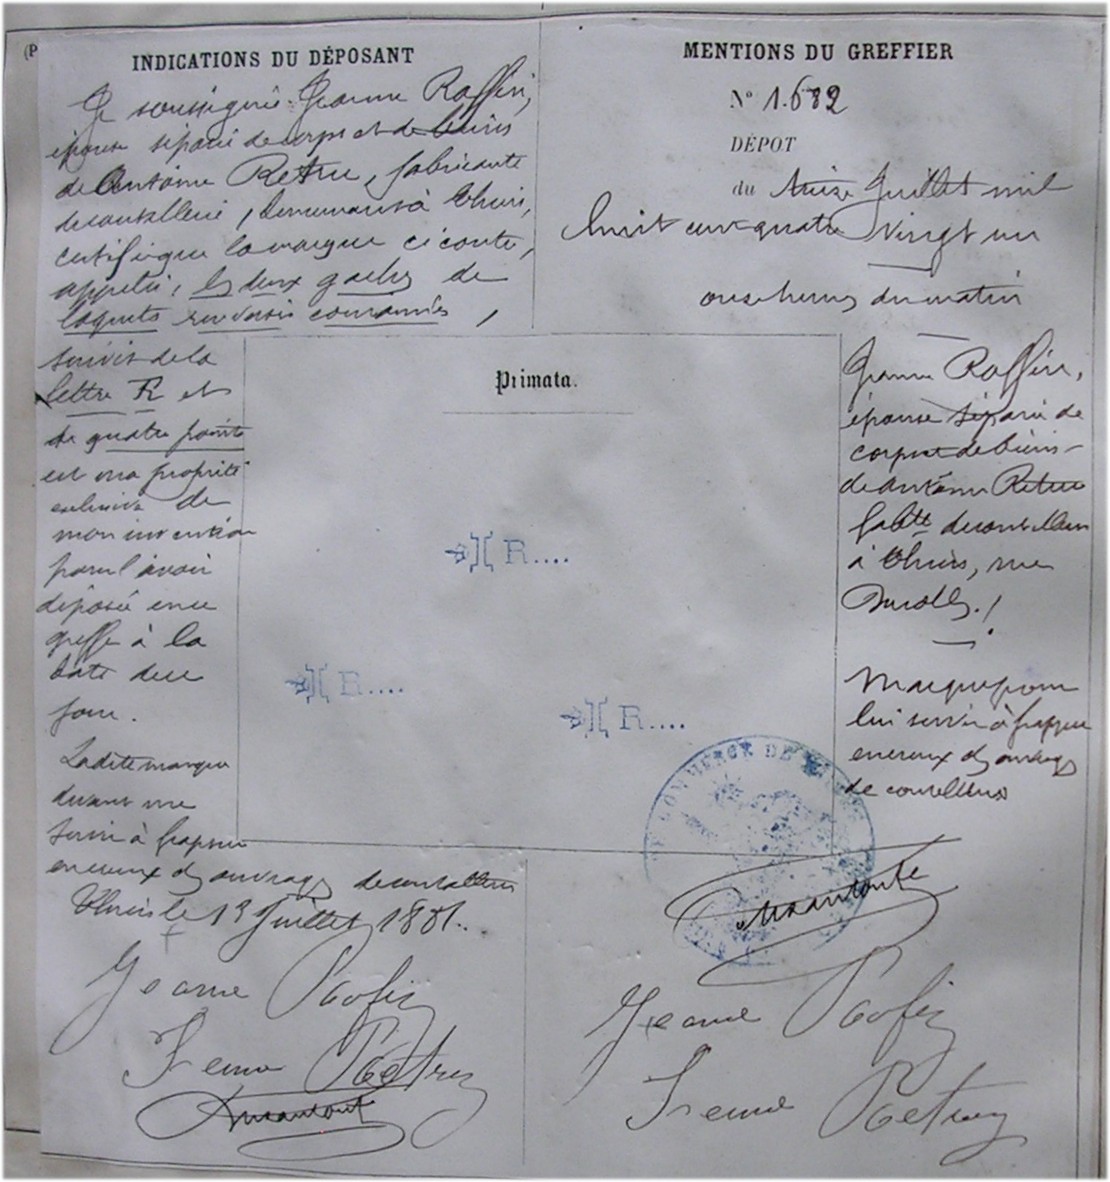 INDICATIONS DU DÉPOSANT
Je soussignée Jeanne Raffin,
épouse séparée de corps et de biens
de Antoine Retru, fabricante
de coutellerie, demeurant à Thiers,
certifie que la marque ci contre,
appelée, les deux gaches de
loquets renversées couronnées,
suivis de la
lettre R et
de quatre points
est ma propriété
exclusive de
mon invention
pour l'avoir
déposée en ce
greffe à la
date de ce
jour.
Ladite marque
devant me
servir à frapper
en creux des ouvrages de coutellerie
Thiers le 13 Juillet 1881.
Jeanne Rofin
Feme Retru
MENTIONS DU GREFFIER
N° 1.682
DÉPOT
du treize Juillet mil
huit cent quatre vingt un
onze heures du matin
Primata.
R....
R....
R....
Jeanne Raffin,
épouse séparée de
corps et de biens
de Antoine Retru
fabte de coutellerie
à Thiers, rue
Durolle.
Marque pour
lui servir à frapper
en creux des ouvrages
de coutellerie
COMMERCE DE
Jeanne Rofin
Feme Retru